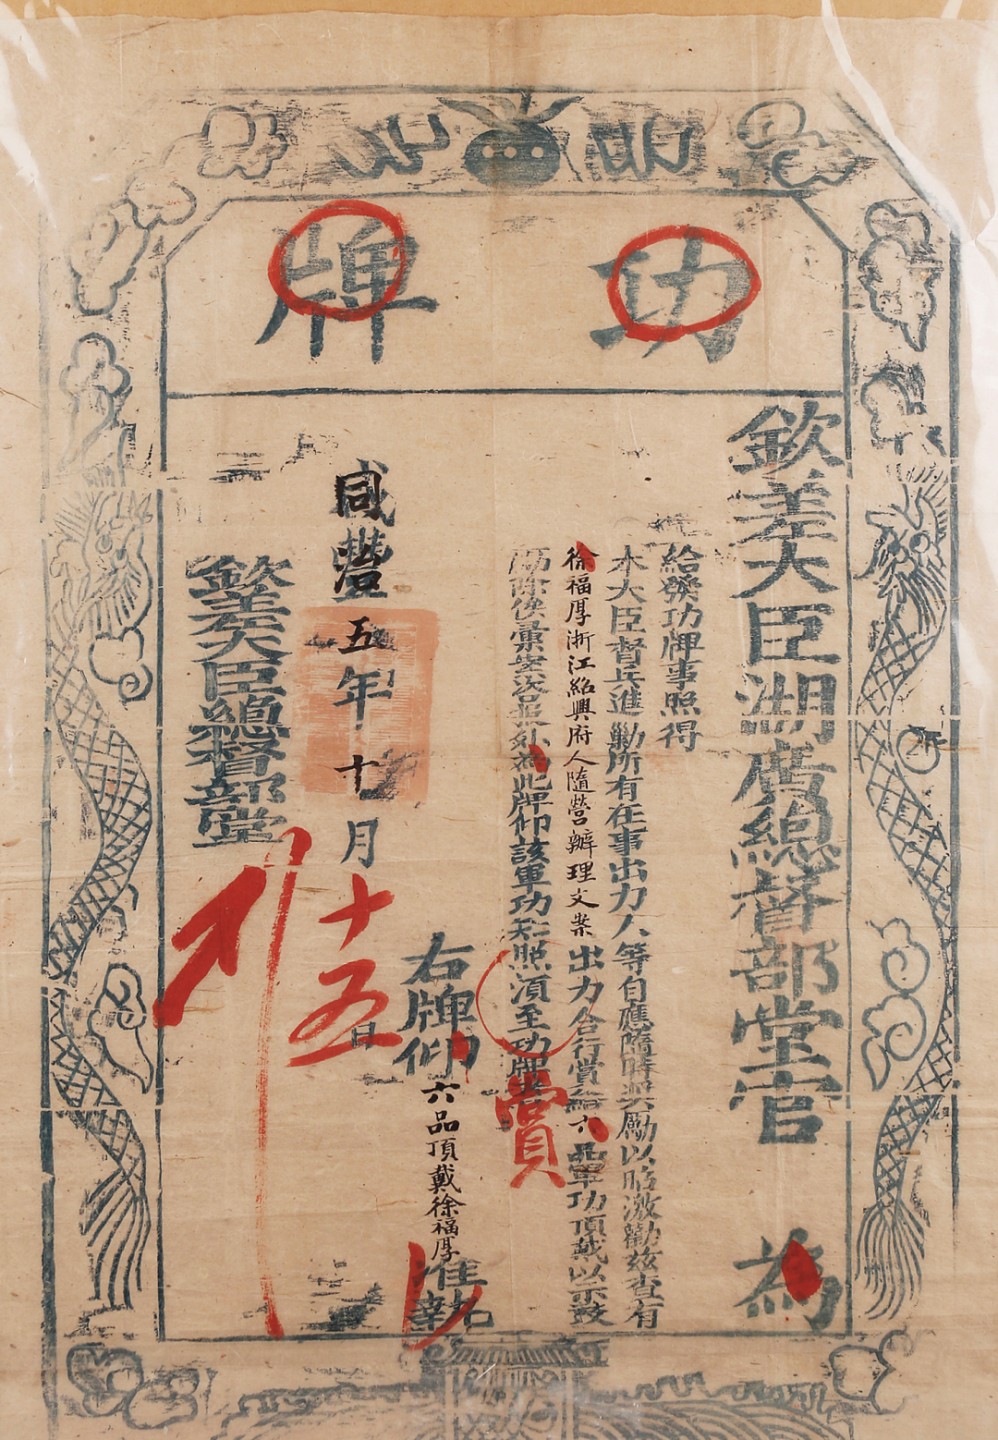 功牌
欽差大臣湖廣總督部堂官 為
給發功牌事照得
本大臣督兵進勦所有在事出力人等自應隨時獎勵以昭激勸茲查有
徐福厚浙江紹興府人隨營辦理文案出力合行賞給六品軍功頂戴以示鼓
勵除俟彙案咨照外為此牌仰該軍功知照須至功牌者
賞
右牌仰六品頂戴徐福厚准執
咸豐五年十月十五日
欽差大臣總督部堂